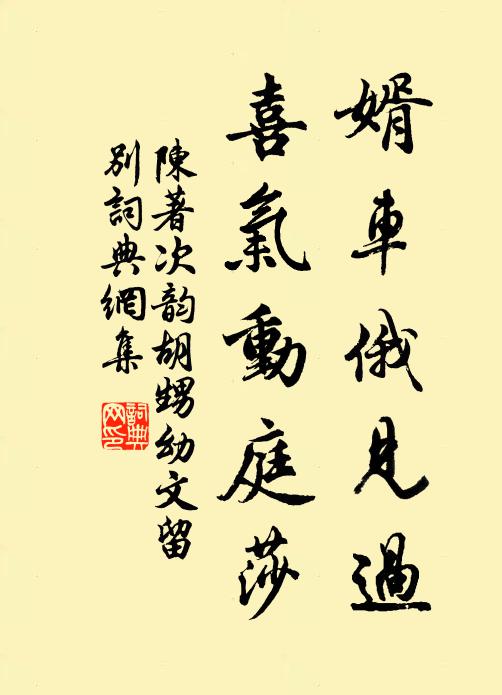 婿車俄見過
喜氣動庭莎
陳著次韵胡甥幼文留
別詞典網集
詞典网印